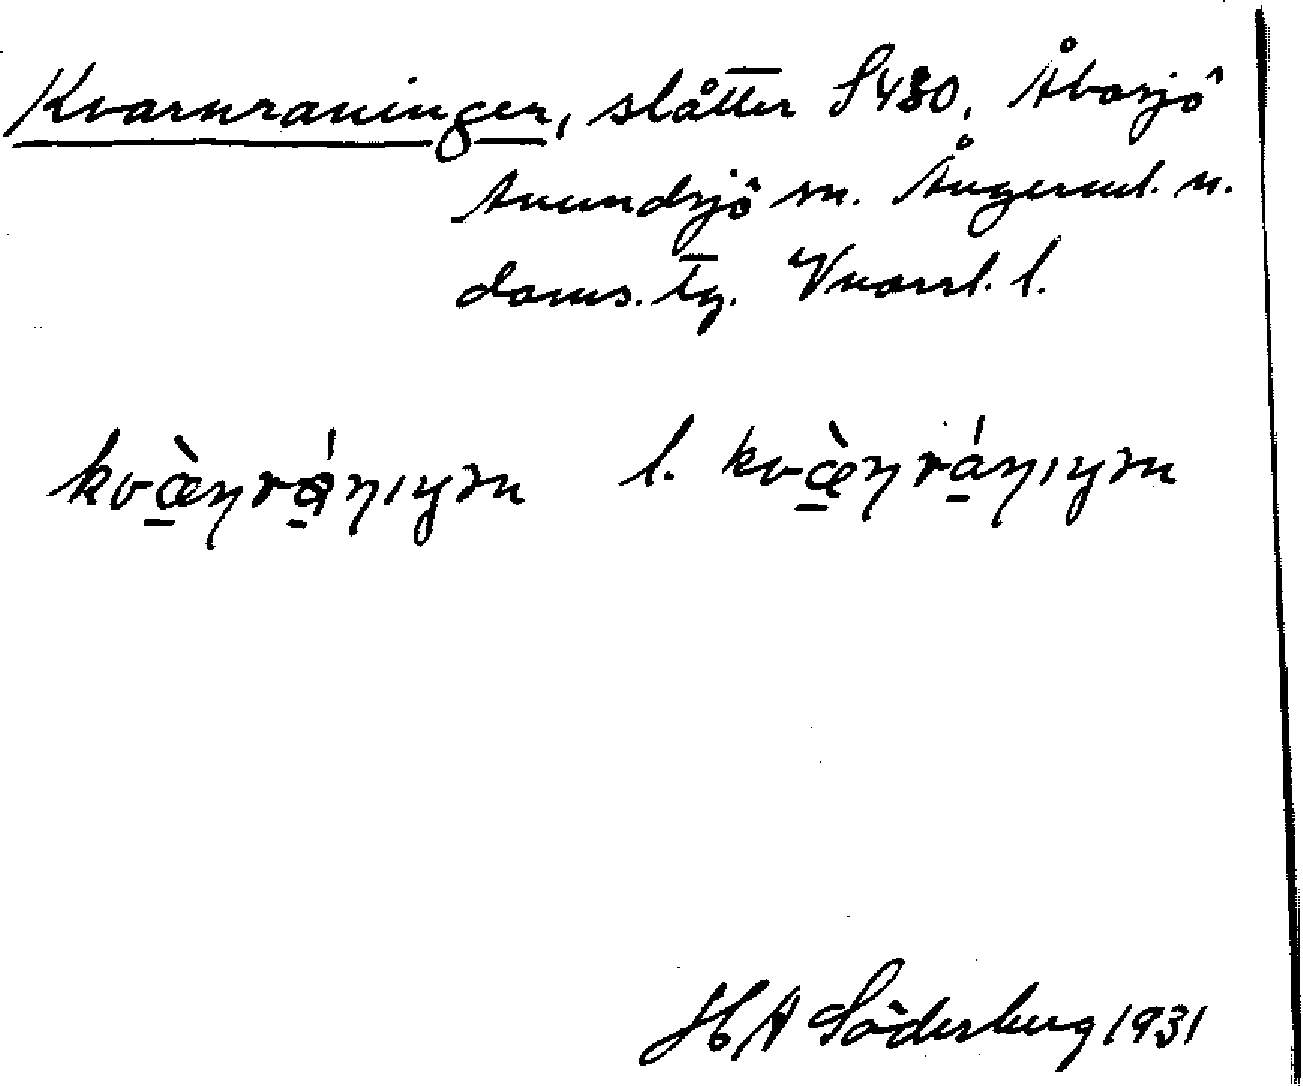 Kvarnraningen, slåtter S480, Åbosjö
Anundsjö sn. Ångerml. n.
doms. tg. Vnorrl. l.
kvæ̀ṇráṇıŋm l. kvæ̀ṇráṇıŋm
H A Söderberg 1931